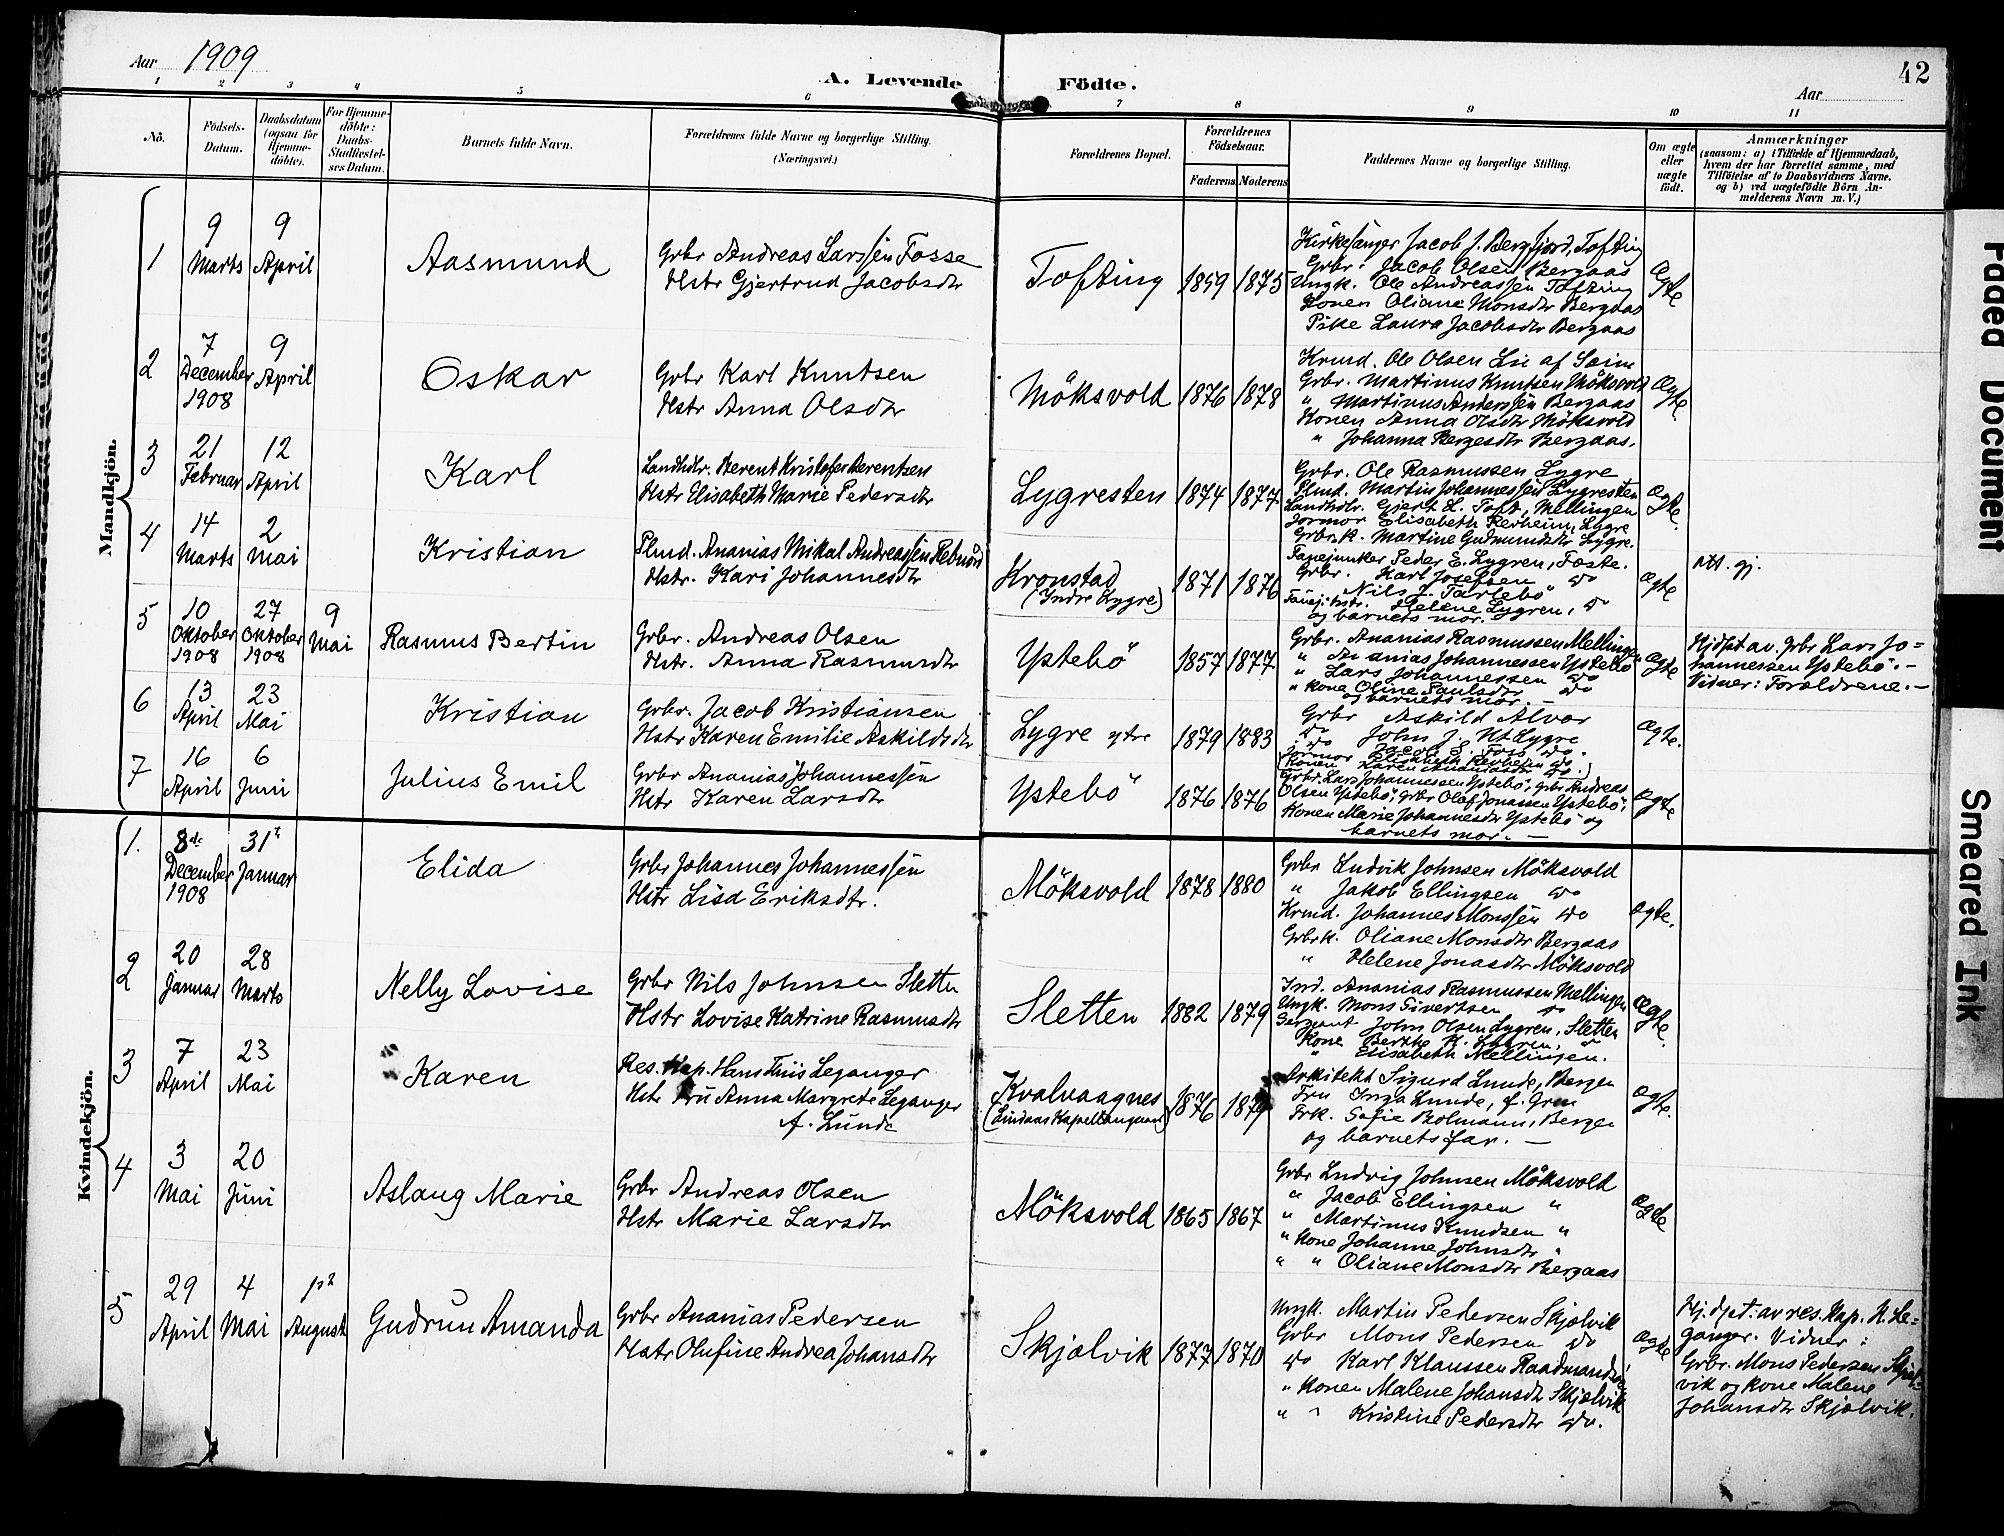 Aar 1909
A. Levende Födte.
42
Aar
1 2 3 4 5 6 7 8 9 10 11
No.
Födsels-Datum.
Daabsdatum (ogsaa for Hjemme-döbte).
For Hjemme-döbte: Daabs-Stadfæstel-ses Datum.
Barnets fulde Navn.
Forældrenes fulde Navne og borgerlige Stilling.
(Næringsvei.)
Forældrenes Bopæl.
Forældrenes Födselsaar.
Faderens Moderens
Faddernes Navne og borgerlige Stilling.
Om ægte eller uægte födt.
Anmærkninger
(saasom: a) i Tilfælde af Hjemmedaab,
hvem der har forrettet samme, med
Tilföielse af to Daabsvidners Navne,
og b) ved uægtefödte Börn An-
melderens Navn m.V.)
Mandkjön.
1
9 Marts
9 April
Aasmund
Grbr Andreas Larssen Fosse
Hstr Gjertrud Jacobsdtr
Tofting
1859 1875
Kirkesanger Jacob J. Bergfjord, Tofting
Grbr. Jacob Olsen Bergaas
Ungk. Ole Andreassen Tofting
Konen Oliane Monsdtr Bergaas
Pike Laura Jacobsdtr Bergaas
Ægte
2
7 December 1908
9 April
Oskar
Grbr Karl Knutsen
Hstr Anna Olsdtr
Möksvold
1876 1878
Krmd. Ole Olsen Lie af Seim
Grbr. Martinus Knutsen Möksvold
" Martinus Anderssen Bergaas
Konen Anna Olsdtr Möksvold
" Johanna Børgesdtr Bergaas.
Ægte
3
21 Februar
12 April
Karl
Landhdlr. Berent Kristofer Berentsen
Hstr Elisabeth Marie Pedersdtr
Lygresten
1874 1877
Grbr. Ole Rasmussen Lygre
Plmd. Martin Johannessen Lygresten
Landhdlr. Gjert L. Toft, Mellingen
Jormor Elisabeth Revheim, Lygre
Grbrk. Martine Gudmundsdtr Lygre.
Ægte.
4
14 Marts
2 Mai
Kristian
Plmd. Ananias Mikal Andreassen Rebnord
Hstr. Kari Johannesdtr
Kronstad
(Indre Lygre)
1871 1876
Fanejunker Peder E. Lygren, Foste.
Grbr. Karl Josefsen do
Nils J. Tarlebö "
Fanej.hstr. Helene Lygren, do
og barnets mor.
Ægte
Att. gj.
5
10 Oktober 1908
27 Oktober 1908
9 Mai
Rasmus Bertin
Grbr. Andreas Olsen
Hstr. Anna Rasmusdtr
Ystebö
1857 1877
Grbr. Ananias Rasmussen Mellingen
" Ananias Johannessen Ystebö
" Lars Johannessen do
" Kone Oline Paulsdtr do
og barnets mor.
Ægte
Hjdpt av. Grbr Lars Jo=
hannessen Ystebö. –
Vidner: Forældrene. –
6
13 April
23 Mai
Kristian
Grbr. Jacob Kristiansen
Hstr Karen Emilie Askildsdtr
Lygre ytre
1879 1883
Grbr Askild Alver
do John J. Yt Lygre
do Jacob S. Foss do.
Jormor Elisabeth Revheim do
Konen Karen Andreasdtr do.
Ægte.
7
16 April
6 Juni
Julius Emil
Grbr Ananias Johannessen
Hstr Karen Larsdtr
Ystebö
1876 1876
Grbr. Lars Johannessen Ystebö, Grbr Andreas
Olsen Ystebö, Grbr Olaf Jonassen Ystebö,
Konen Marie Johannesdtr Ystebö og
barnets mor. –
Ægte
Kvindekjön.
1.
8de December 1908
31te Januar
Elida
Grbr Johannes Johannessen
Hstr Lisa Eriksdtr.
Möksvold
1878 1880
Grbr Ludvik Johnsen Möksvold
" Jakob Ellingsen do
Krmd. Johannes Monssen do
Grbrk. Oliane Monsdtr Bergaas
" Helene Jonasdtr Möksvold
Ægte.
2
20 Januar
28 Marts
Nelly Lovise
Grbr Nils Johnsen Sletten
Hstr Lovise Katrine Rasmusdtr
Sletten
1882 1879
Ind. Ananias Rasmussen Mellingen
Ungk. Mons Sivertsen do
Sergeant John Olsen Lygren, Sletten
Kone Berthe K. Lygren, "
" Elisabeth Mellingen.
Ægte.
3
7 April
23 Mai
Karen
Res. Kap. Hans Tiis Leganger
Hstr Fru Anna Margrete Leganger
f. Lunde
Kvalvaagnes
(Lindaas Kapellangaard)
1876 1879
Arkitekt Sigurd Lunde, Bergen
Fru Inga Lunde, f. Gran
Frk. Sofie Bolmann, Bergen
og barnets far. –
Ægte.
4
3 Mai
20 Juni
Aslaug Marie
Grbr Andreas Olsen
Hstr Marie Larsdtr
Möksvold
1865 1867
Grbr Ludvig Johnsen Möksvold
" Jacob Ellingsen "
" Martinus Knudsen "
" Kone Johanne Johnsdtr "
" " Oliane Monsdtr Bergaas
Ægte
5
29 April
4 Mai
1ste August
Gudrun Amanda
Grbr Ananias Pedersen
Hstr Olufine Andrea Johansdtr
Skjælvik
1877 1870
Ungk. Martin Pedersen Skjælvik
Grbr Mons Pedersen do
do Karl Klaussen Raadmandsø
" Konen Malene Johansdtr Skjælvik
" " Kristine Pedersdtr do.
Ægte
Hj. dpt. av res. Kap. H. Le=
ganger. Vidner:
Grbr. Mons Pedersen Skjæl-
vik og kone Malene
Johansdtr Skjælvik.
Faded Document
Smeared Ink